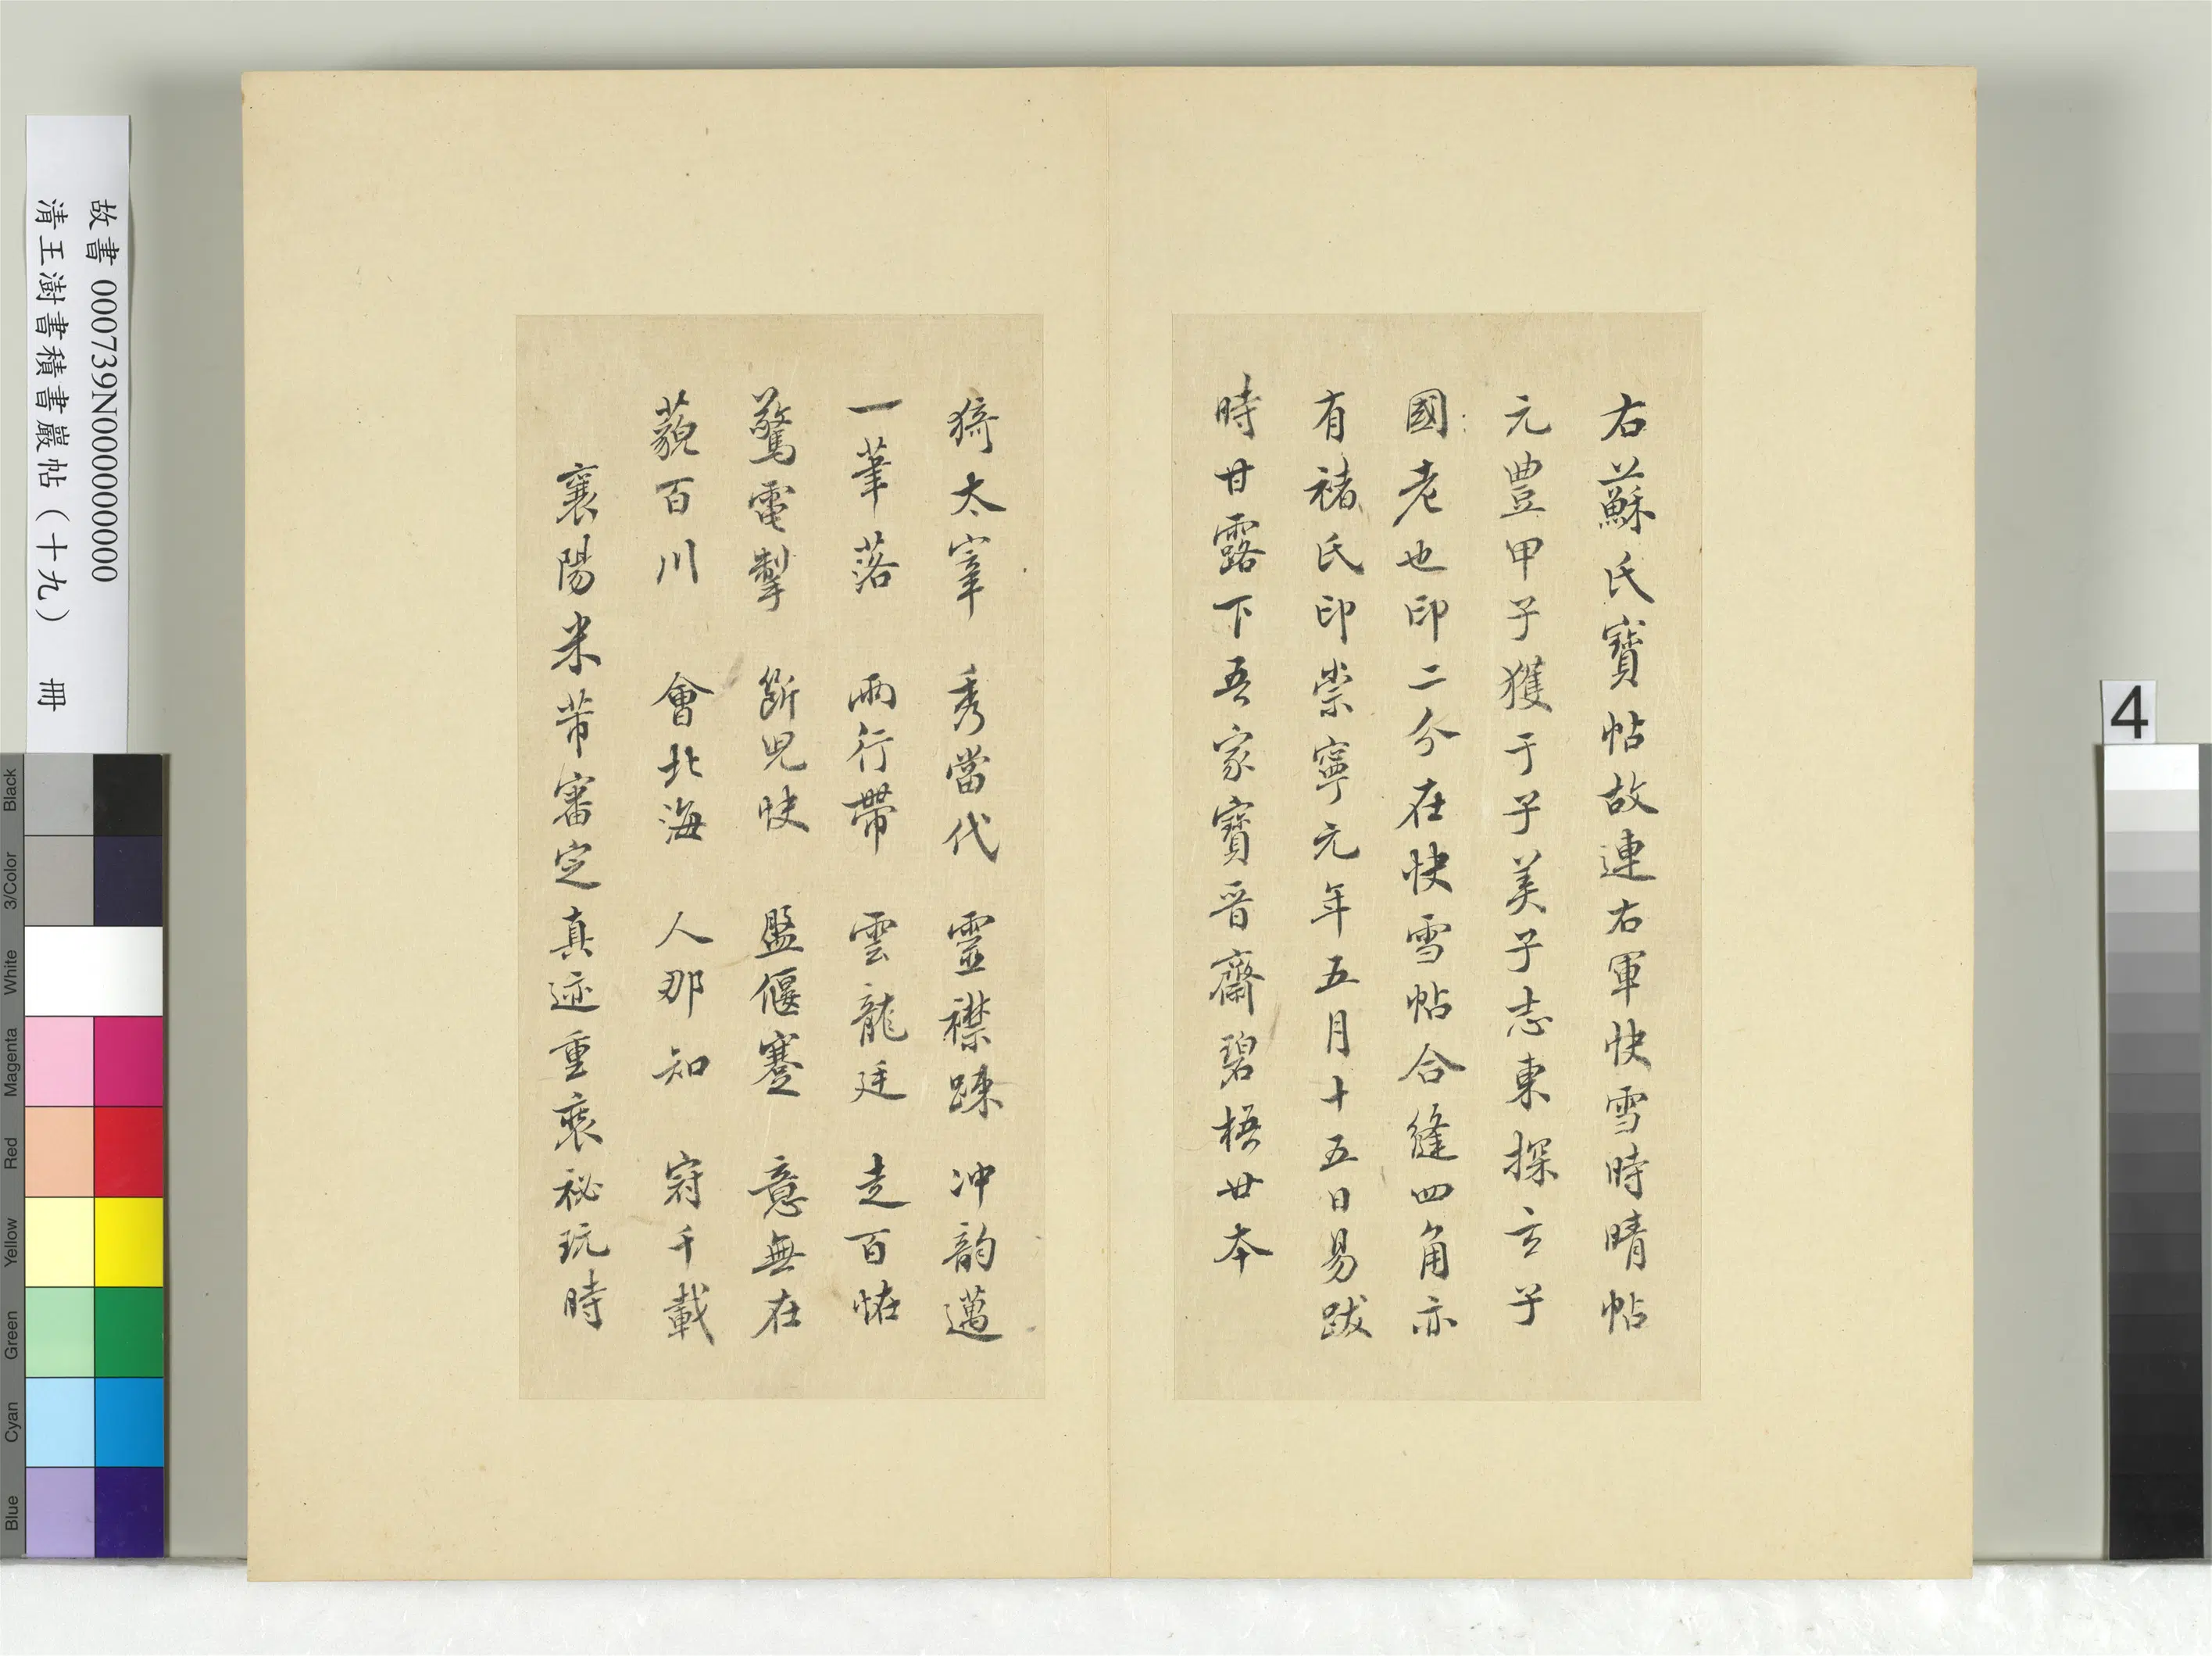 右蘇氏寶帖故連右軍快雪時晴帖
元豊甲子獲于子美子志東探玄子
國老也印二分在快雪帖合縫四角亦
有褚氏印崇寧元年五月十五日易跋
時甘露下吾家寶晉齋碧梧廿本
猗太宰 秀當代 靈襟疎 沖韵邁
一筆落 兩行帶 雲龍廷 走百怪
驚電掣 斷兕快 盤偃蹇 意無在
藐百川 會北海 人那知 冠千載
襄陽米芾審定真迹重裝祕玩時
故書 000739N000000000
清王澍書積書巖帖(十九) 冊
4
Black
3/Color
White
Magenta
Red
Yellow
Green
Cyan
Blue